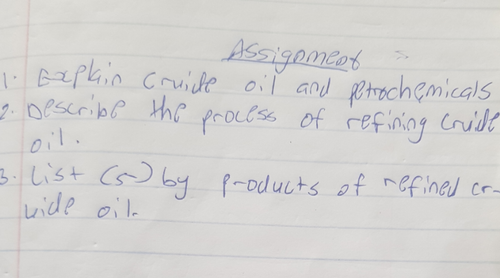 Assignment
1. Explain Cruide oil and petrochemicals
2. Describe the process of refining Cruide
oil.
3. List (5) by products of refined cr-
uide oil.